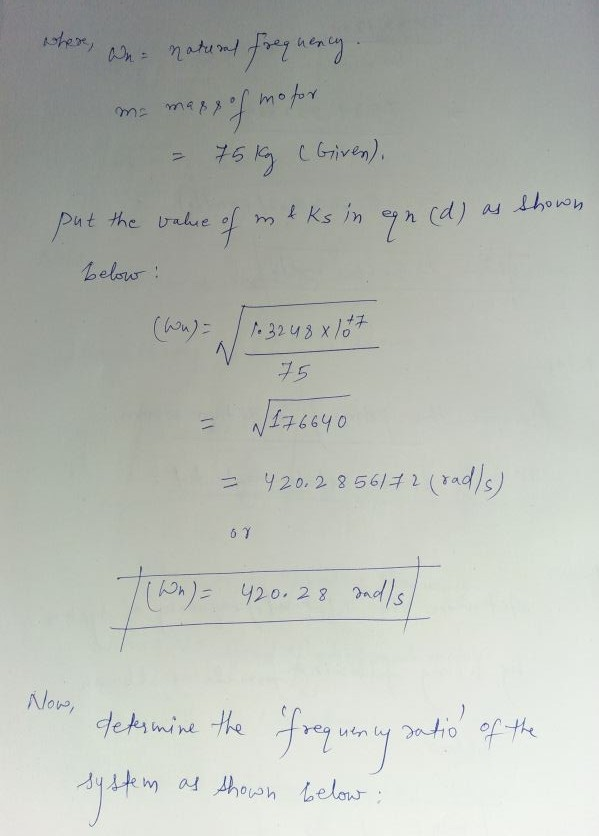 where, ωn = natural frequency.
m = mass of motor
= 75 kg (Given).
put the value of m & Ks in eqn (d) as shown
below:
(ωn) = √(1.3248 × 10^+7 / 75)
= √176640
= 420.2856172 (rad/s)
or
(ωn) = 420.28 rad/s
Now,
determine the 'frequency ratio' of the
system as shown below: